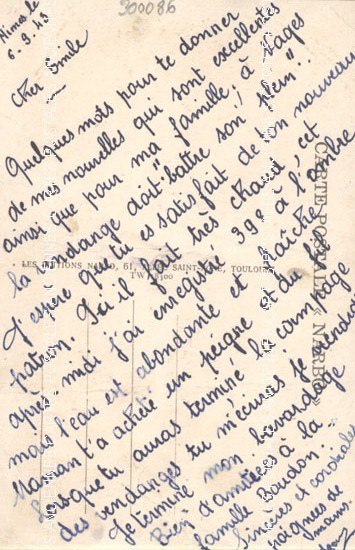 300086
Nîmes le
6-9-43
Cher Emile
Quelques mots pour te donner
de mes nouvelles qui sont excellentes
ainsi que pour ma famille, à Nages
la vendange doit "battre son plein".
J'espère que tu es satisfait de ton nouveau
patron. Ici il fait très chaud, cet
après-midi j'ai enregistré 39° à l'ombre
mais l'eau est abondante et fraîche.
Maman t'a acheté un peigne et du fil
Lorsque tu auras terminé la campagne
des vendanges tu m'écriras je
Je termine mon bavardage
Bien d'amitiés à la
famille
Sincères et cordiales
poignées de
mains
CARTE POSTALE « NARBO »
LES ÉDITIONS NARBO, 61, TOULOUSE